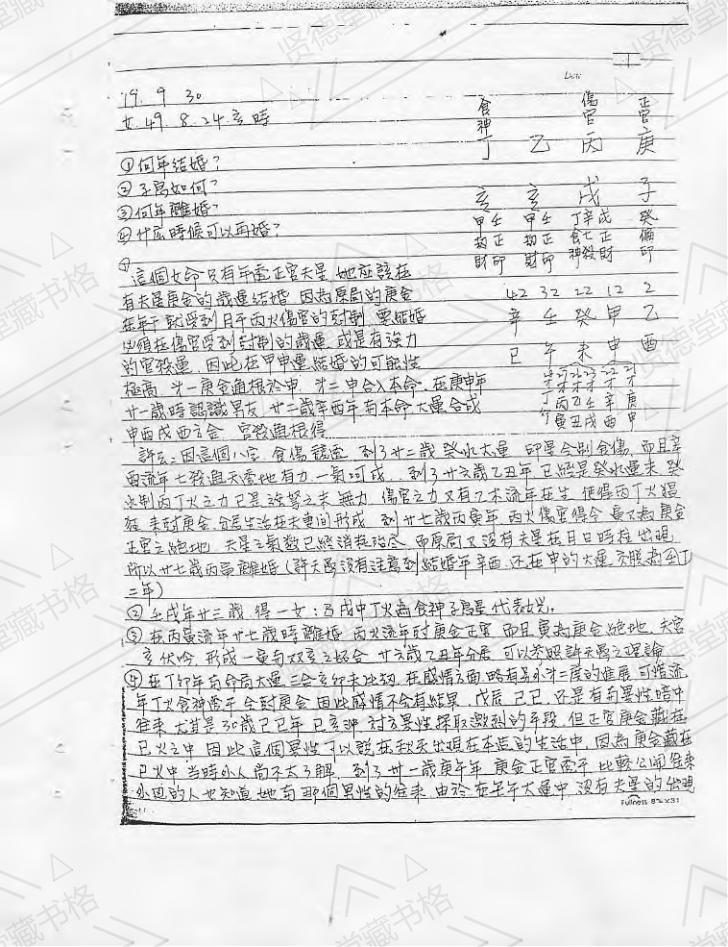 1
Date
79. 9 30
女 49. 8. 24. 亥時
食神 傷官 正官
丁 乙 丙 庚
①何年結婚?
②子息如何?
③何年離婚?
④什庅時候可以再婚?
亥 亥 戌 子
甲壬 甲壬 丁辛戌 癸
劫正 劫正 食七正 偏
財印 財印 神殺財 印
①
這個女命只有年干正官夫星 她应該在
有夫星庚金的歲運結婚 因為原局的庚金
在年干就受到月干丙火傷官的尅制 要結婚
必須在傷官受到尅制的歲運 或是有強力
的官殺運 因此在甲申運結婚的可能性
極高 才一庚金通根於申 才二申合入本命 在庚申年
廿一歲時認識男友 廿二歲辛酉年与本命大運合成
申酉戌西方金 官殺通根得
42 32 22 12 2
辛 壬 癸 甲 乙
巳 午 未 申 酉
丁 丙 乙 壬 辛 庚
卯 寅 丑 戌 酉 申
許云:因這個八字 食傷競透 到了廿二歲 癸水大運 印星合剋食傷 而且辛
酉流年七殺通天透地有力 一氣呵成 到了廿六歲乙丑年 已經是癸水運末 癸
水制丙丁火之力已是強弩之末 無力 傷官之力又有乙木流年在生 使得丙丁火猖
狂 來尅庚金 分居生活在夫妻间形成 到廿七歲丙寅年 丙火傷官得令 寅又為庚金
正官之絕地 夫星之氣数已經消耗殆尽 而原局又沒有夫星在月日時柱出現
所以廿七歲丙寅離婚(許夫子沒有注意到結婚年辛酉 还在申的大運
二年)
②壬戌年廿三歲 得一女:因戌中丁火為食神子息星 代表女兒。
③在丙寅流年廿七歲時離婚 丙火流年尅庚金正官 而且寅為庚金絕地 夫宮
亥伏吟 形成一寅与双亥之妬合 廿六歲乙丑年分居 可以参照許夫子之理論
④在丁卯年与命局大運三合亥卯未比劫 在感情方面略有另外才三度的進展 可惜流
年丁火食神透干 合尅庚金 因此感情不会有結果 戊辰 己巳 还是有与異性暗中
往來 尤其是30歲己巳年 巳亥冲 对方異性採取激烈的手段 但正官庚金藏在
巳火之中 因此這個異性可以說在秋天出現在本造的生活中 因為庚金藏在
巳火中 当時外人尚不太了解 到了卅一歲庚午年 庚金正官透干 比較公開往來
外边的人也知道她与那個男性的往來 由於在壬午大運中 沒有夫星的出現
Fullness 8¾ x 31